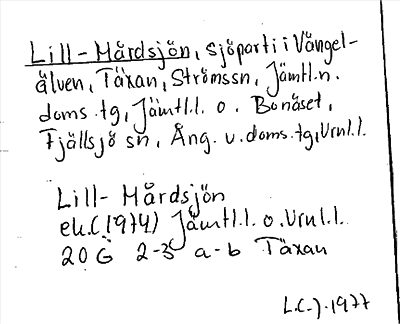 Lill-Mårdsjön, sjöparti i Vängel-
älven, Täxan, Strömssn, Jämtl.n.
doms.tg, Jämtl.l. o. Bonäset,
Fjällsjö sn, Ång. v. doms.tg, Vrnl.l.
Lill-Mårdsjön
ek.(1974) Jämtl.l. o. Vrnl.l.
20 G 2-3 a-b Täxan
L.C.J. 1977